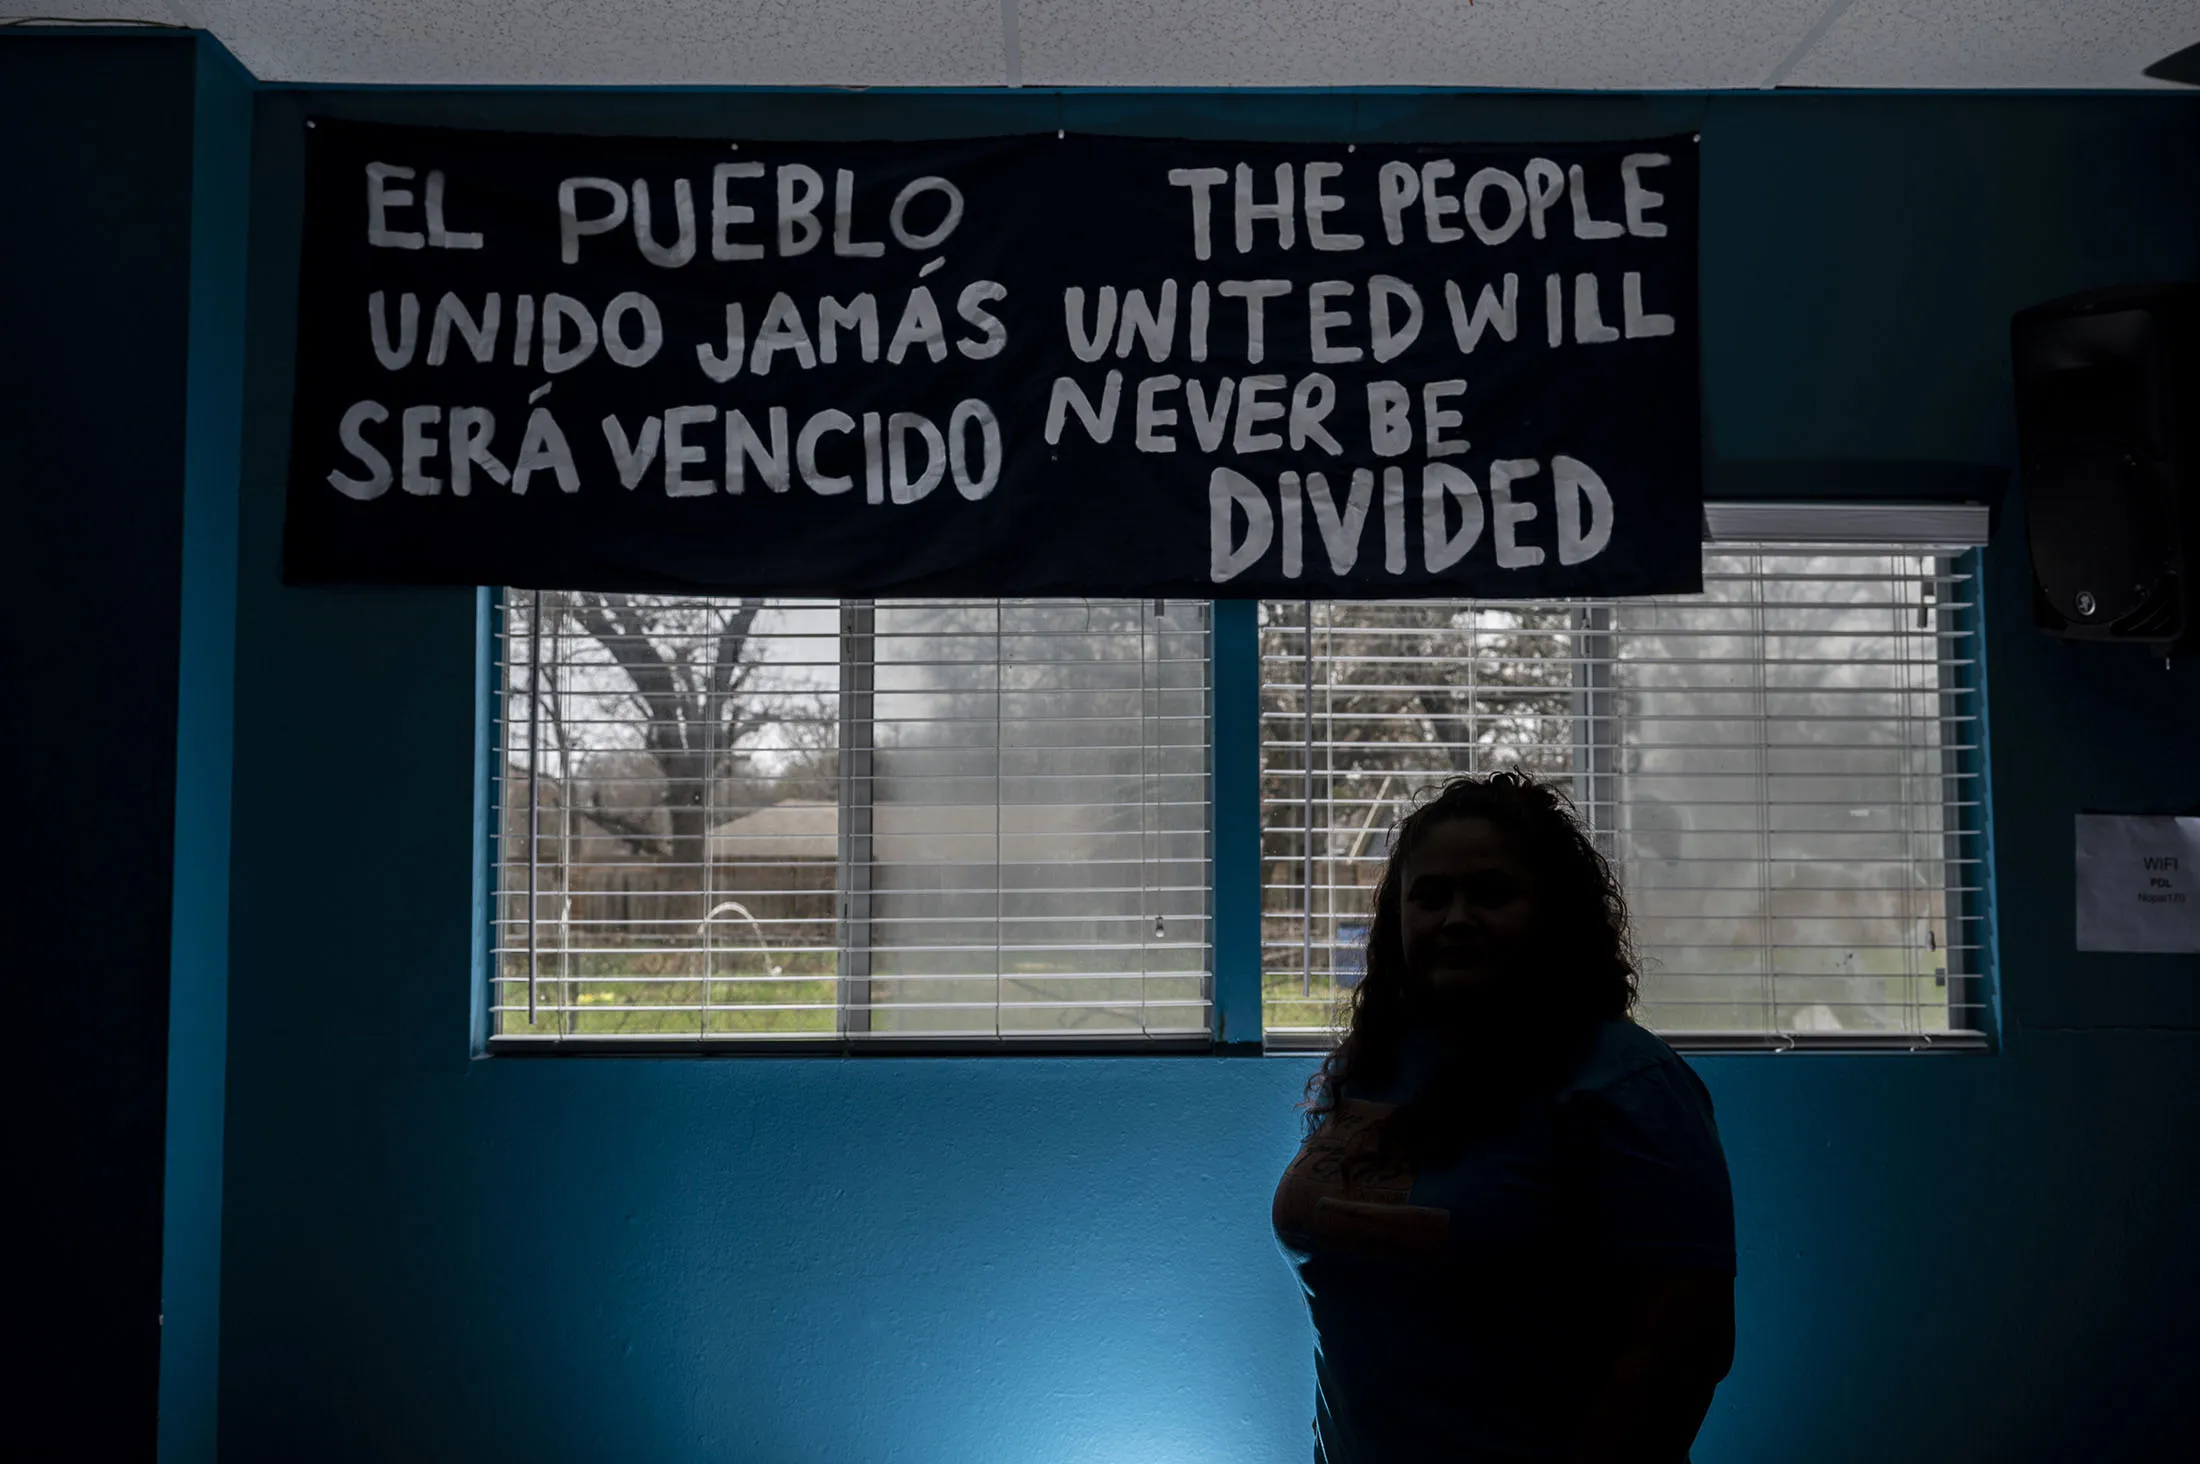 EL PUEBLO
UNIDO JAMÁS
SERÁ VENCIDO
THE PEOPLE
UNITED WILL
NEVER BE
DIVIDED
WIFI
PDL